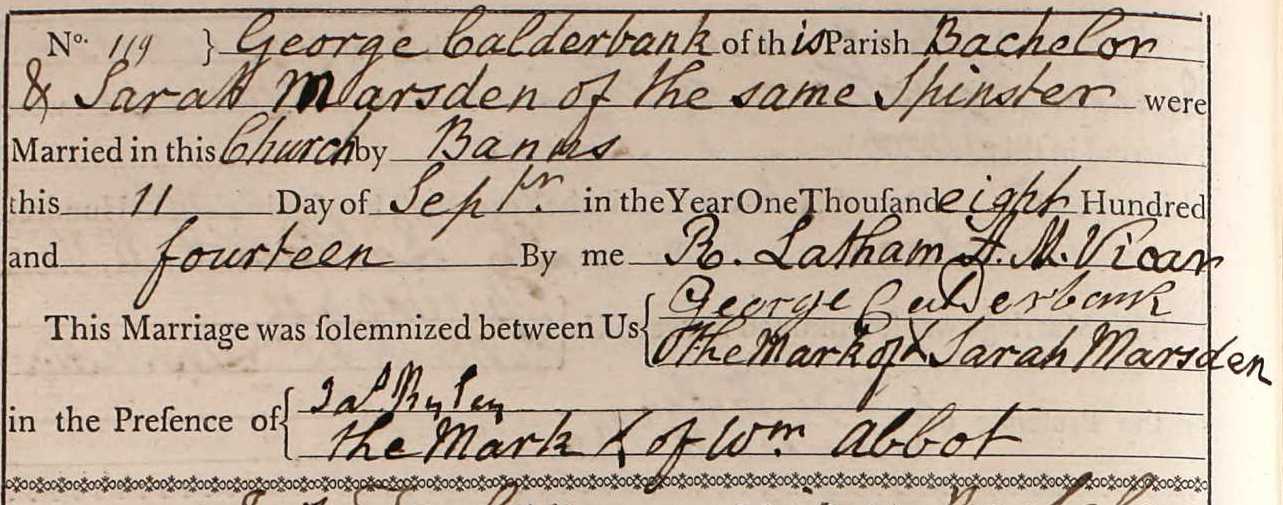 No. 119 } George Calderbank of this Parish Bachelor
& Sarah Marsden of the same Spinster were
Married in this Church by Banns
this 11 Day of Septr. in the Year One Thouſand eight Hundred
and fourteen By me R. Latham A. M. Vicar
This Marriage was ſolemnized between Us { George Calderbank
the Mark of X Sarah Marsden
in the Preſence of { Jas Ryley
the Mark X of Wm. Abbot